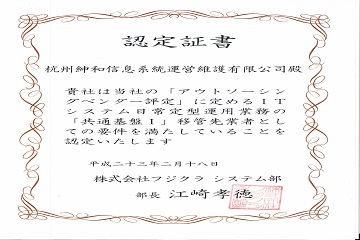 認定証書
杭州紳和信息系統運営維護有限公司殿
貴社は当社の「アウトソーシン
グベンダー評定」に定めるIT
システム日常定型運用業務の
「共通基盤I」移管先業者とし
ての要件を満たしていることを
認定いたします
平成二十三年二月十八日
株式会社フジクラ システム部
部長 江崎孝徳